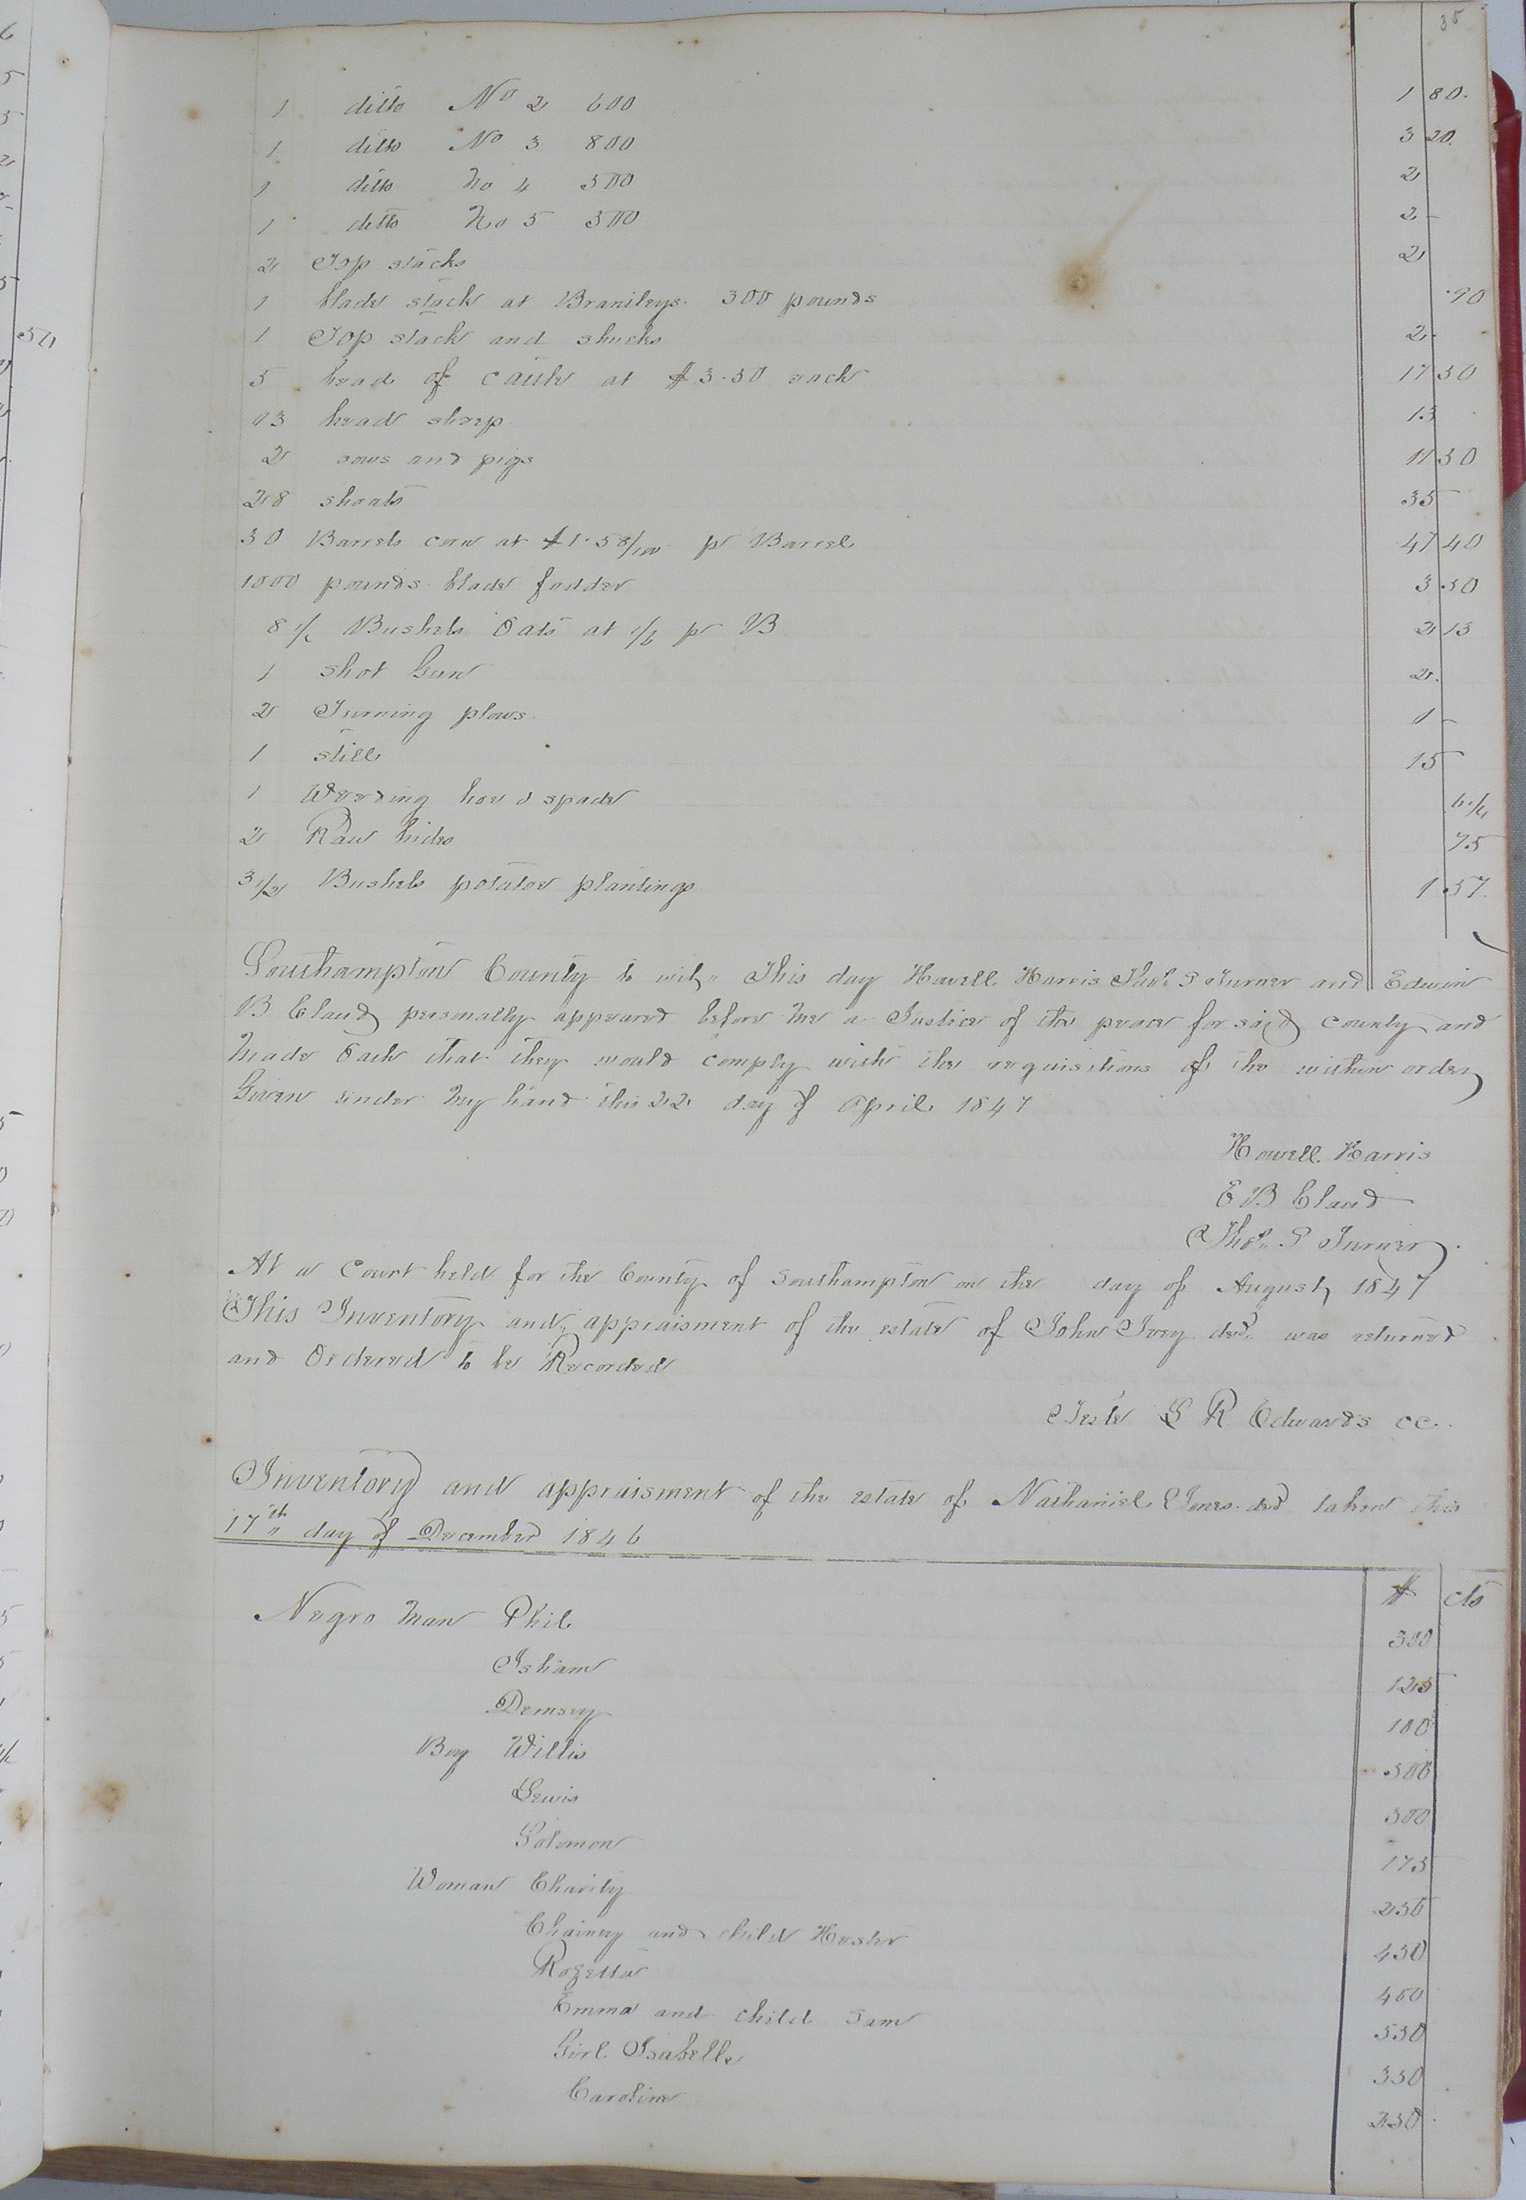 35
1 ditto No 2 600 1 80.
1 ditto No 3 800 3 20.
1 ditto No 4 500 2
1 ditto No 5 500 2 -
2 Top stacks 2
1 blade stack at Brantleys. 300 pounds .90
1 Top stack and shucks 2.
5 head of cattle at $3.50 each 17 50
13 head sheep 13
2 sows and pigs 11 50
28 shoats 35
30 Barrels corn at $1.58/100 pr Barrel 47 40
1000 pounds blade fodder 3.50
8 1/2 Bushels Oats at 1/6 pr B 2 13
1 shot Gun 2.
2 Turning plows. 1 -
1 still 15
1 Weeding hoe & spade 6 1/4
2 Raw hides 75
3 1/2 Bushels potatoe plantings 1.57.
Southampton County to wit, This day Howell Harris Thos. S Turner and Edwin
B Claud personally appeared before me a Justice of the peace for said county and
made Oath that they would comply with the requisitions of the within order
Given under my hand this 22 day of April 1847
Howell Harris
E B Claud
Thos. S Turner.
At a Court held for the County of Southampton on the day of August, 1847
This Inventory and, appraisment of the estate of John Ivey decd. was returned
and Ordered to be Recorded
Teste L R Edwards cc.
Inventory and appraisment of the estate of Nathaniel Jones decd taken this
17th day of December 1846
$ cts
Negro man Phil 300
Isham 125
Demsey 100
Boy Willis 500
Lewis 500
Solomon 175
Woman Charity 250
Chainey and child Hester 450
Rozetta 460
Emma and child Sam 550
Girl Isabella 350
Caroline 250.